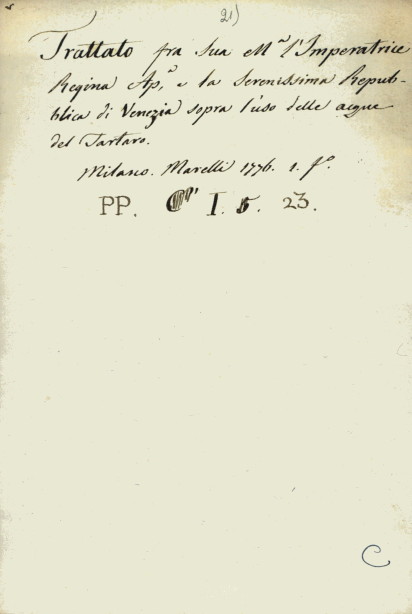 21)
Trattato fra Sua Mª l'Imperatrice
Regina Ap.ª, e la Serenissima Repub-
blica di Venezia sopra l'uso delle acque
del Tartaro.
Milano. Marelli 1776. 1. fº.
PP. I. 5. 23.
C